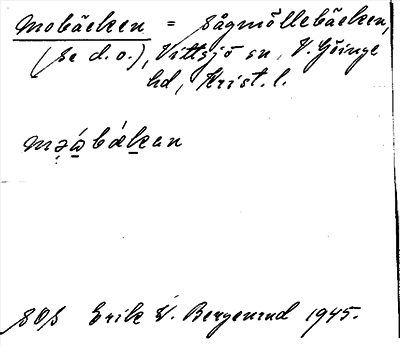 Mobäcken = Sågmöllebäcken,
(se d.o.), Vittsjö sn, V. Göinge
hd, Krist. l.
SOS Erik V. Bergenrud 1945.